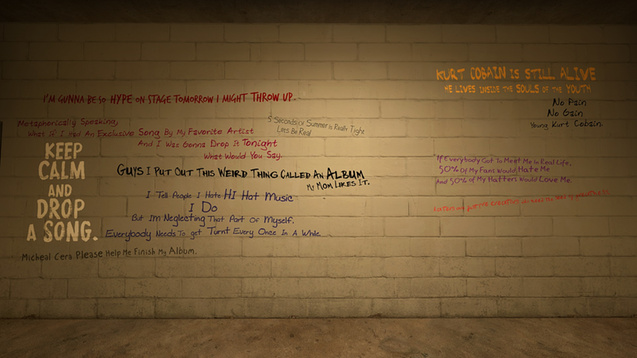 I'M GONNA BE SO HYPE ON STAGE TOMORROW I MIGHT THROW UP.
Metaphorically Speaking,
What If I Had An Exclusive Song By My Favorite Artist
And I Was Gonna Drop It Tonight
What Would You Say.
5 Seconds of Summer is Really Tight
Lets Be Real
KEEP
CALM
AND
DROP
A SONG.
GUYS I PUT OUT THIS WEIRD THING CALLED AN ALBUM
MY MOM LIKES IT.
I Tell People I Hate HI Hat Music
I Do
But Im Neglecting That Part Of Myself.
Everybody Needs To get Turnt Every Once In A While
Micheal Cera Please Help Me Finish My Album.
KURT COBAIN IS STILL ALIVE
HE LIVES INSIDE THE SOULS OF THE YOUTH
No Pain
No Gain
Young Kurt Cobain
If Everybody Got To Meet Me In Real Life,
50% Of My Fans Would Hate Me
And 50% of My Haters Would Love Me